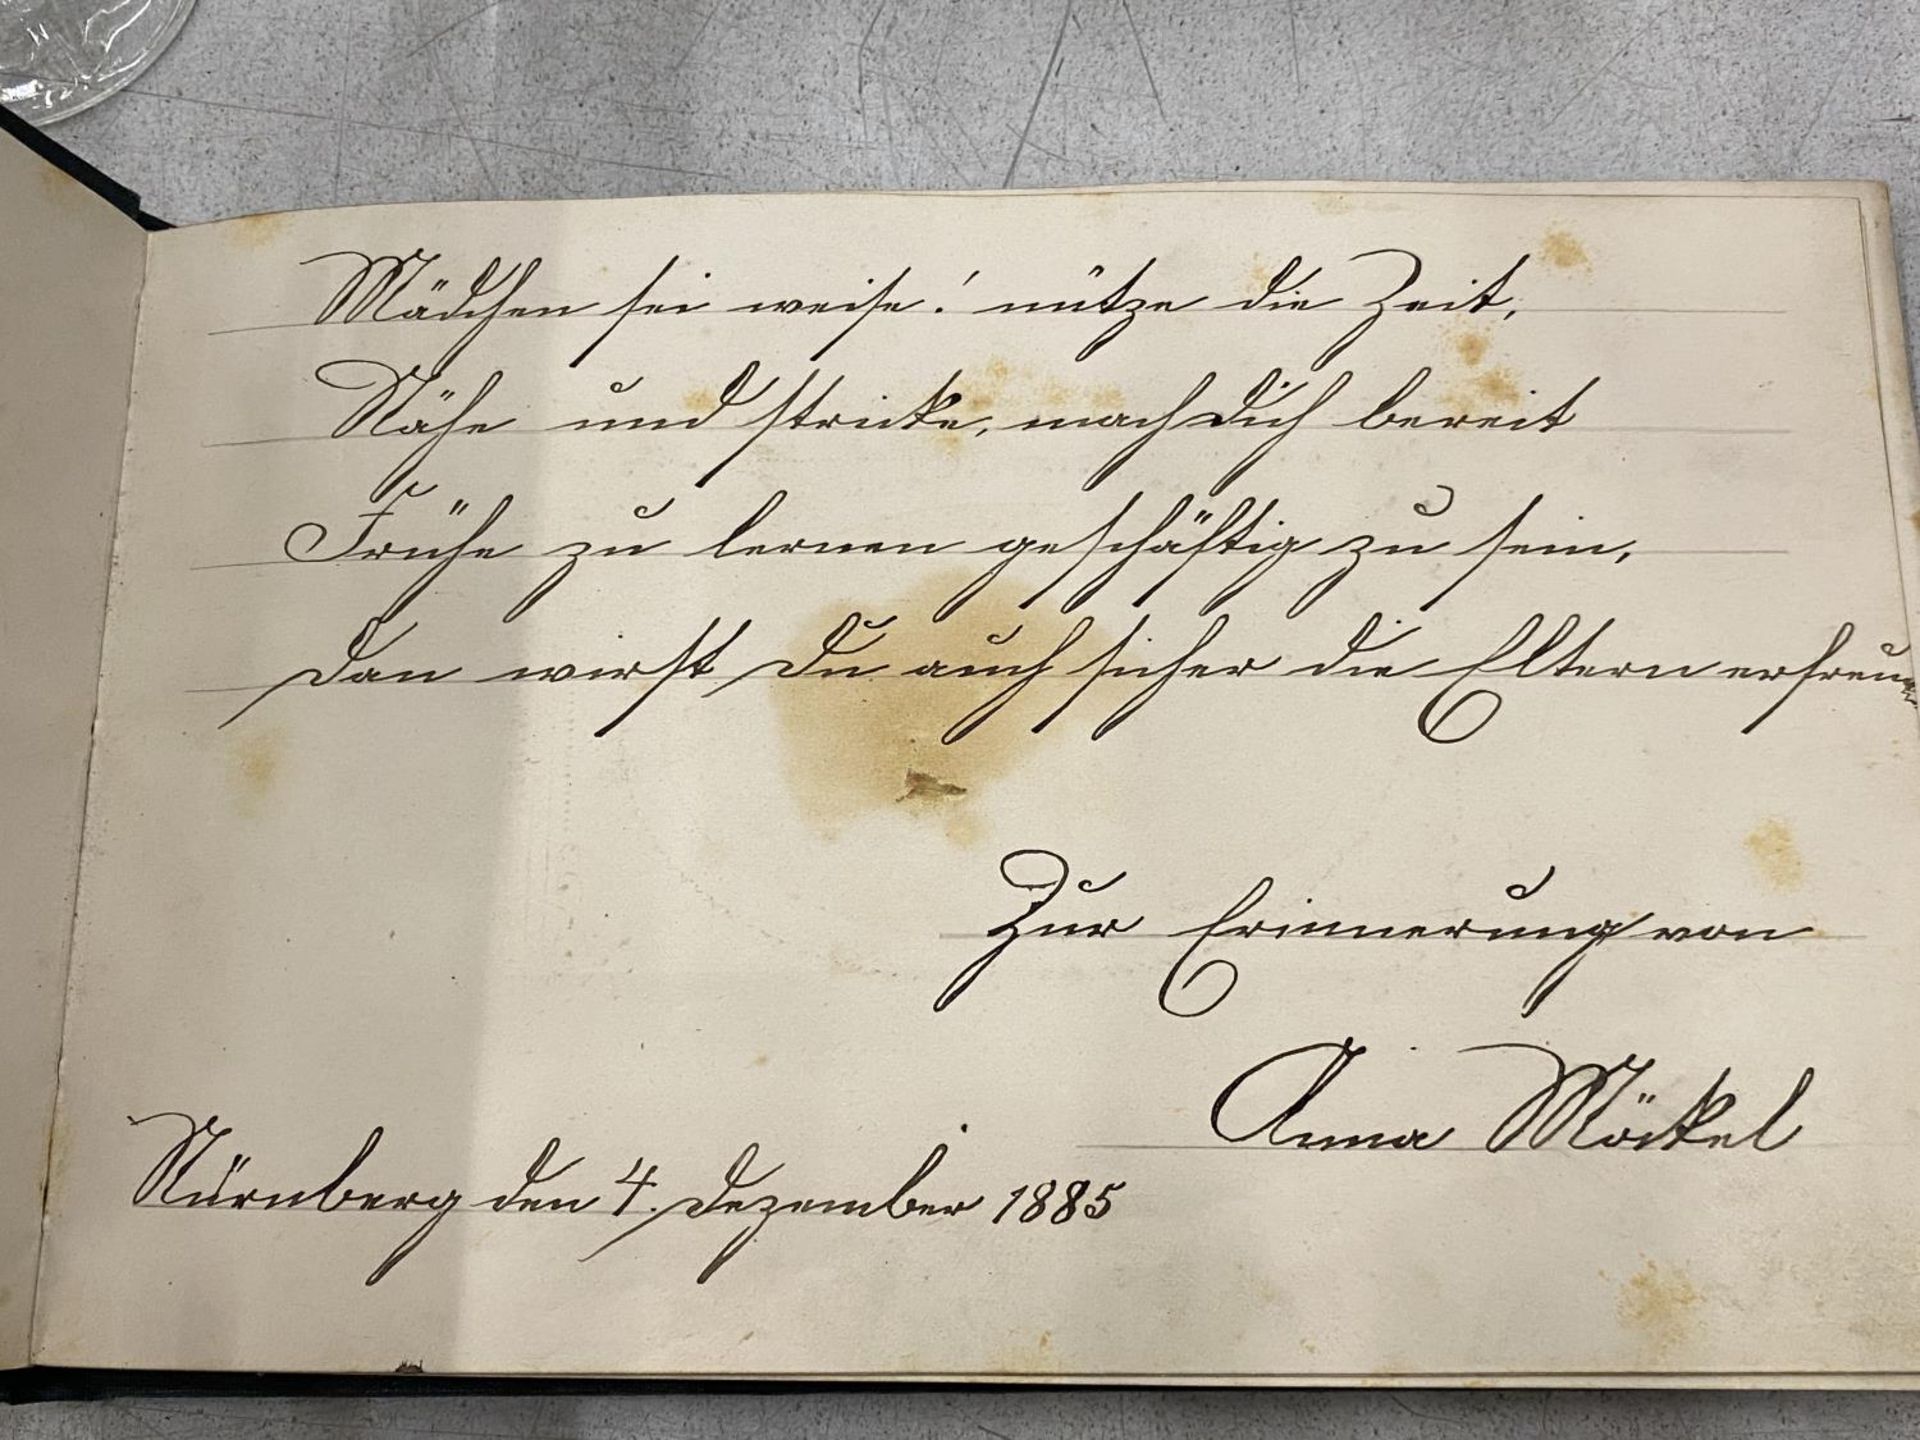 Mädchen sei weise! nütze die Zeit,
Nähe und stricke, mach dich bereit
Frühe zu lernen geschäftig zu sein,
Dan wirst Du auch sicher die Eltern erfreun
Zur Erinnerung von
Anna Möckel
Nürnberg den 4. Dezember 1885